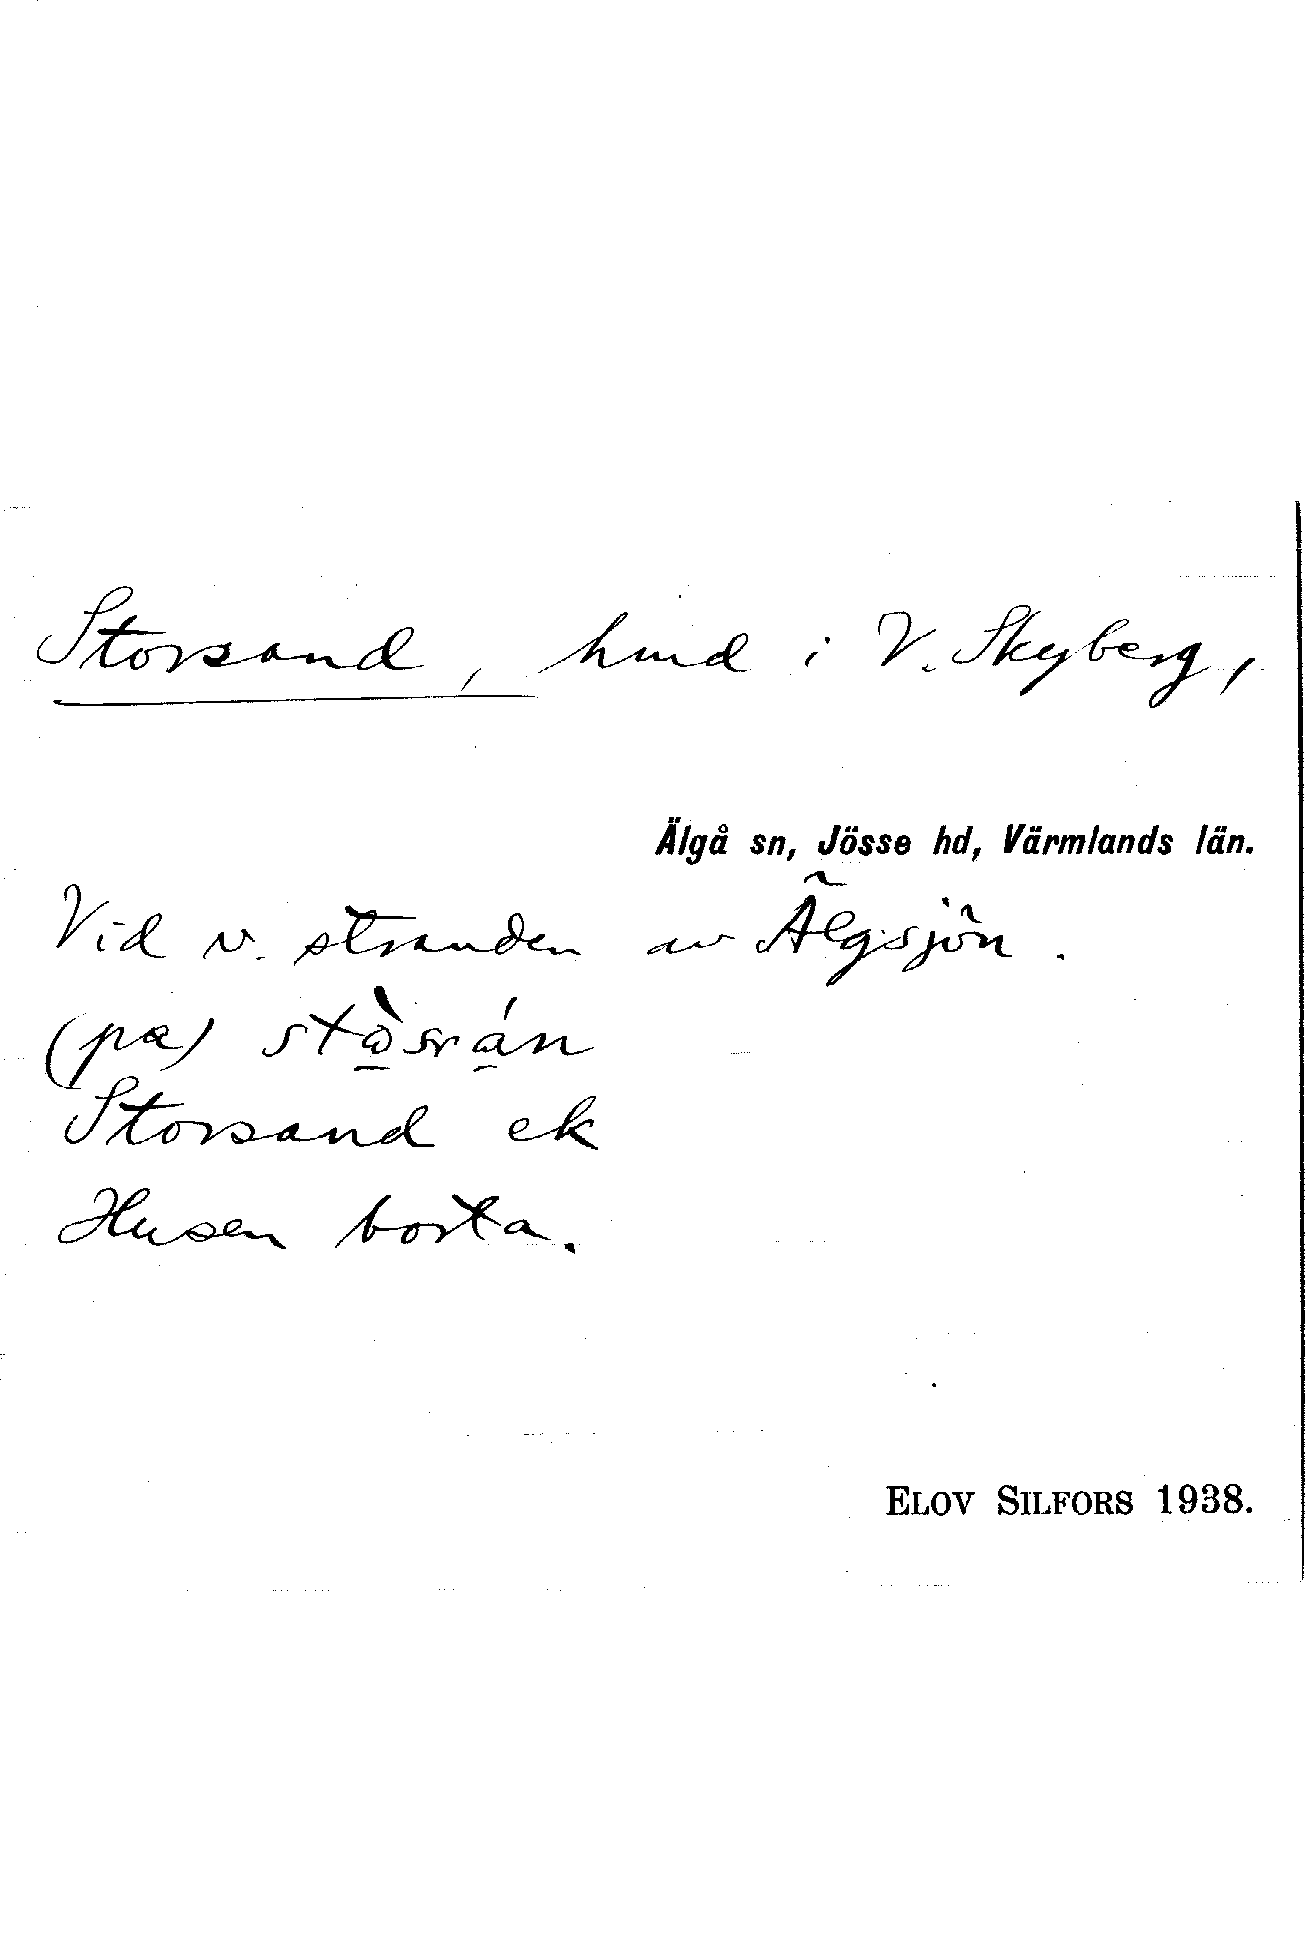 Storsand, hmd i V. Skyberg,
Älgå sn, Jösse hd, Värmlands län.
Vid v. stranden av Älgsjön.
(pa)
Storsand ek
Husen borta.
ELOV SILFORS 1938.